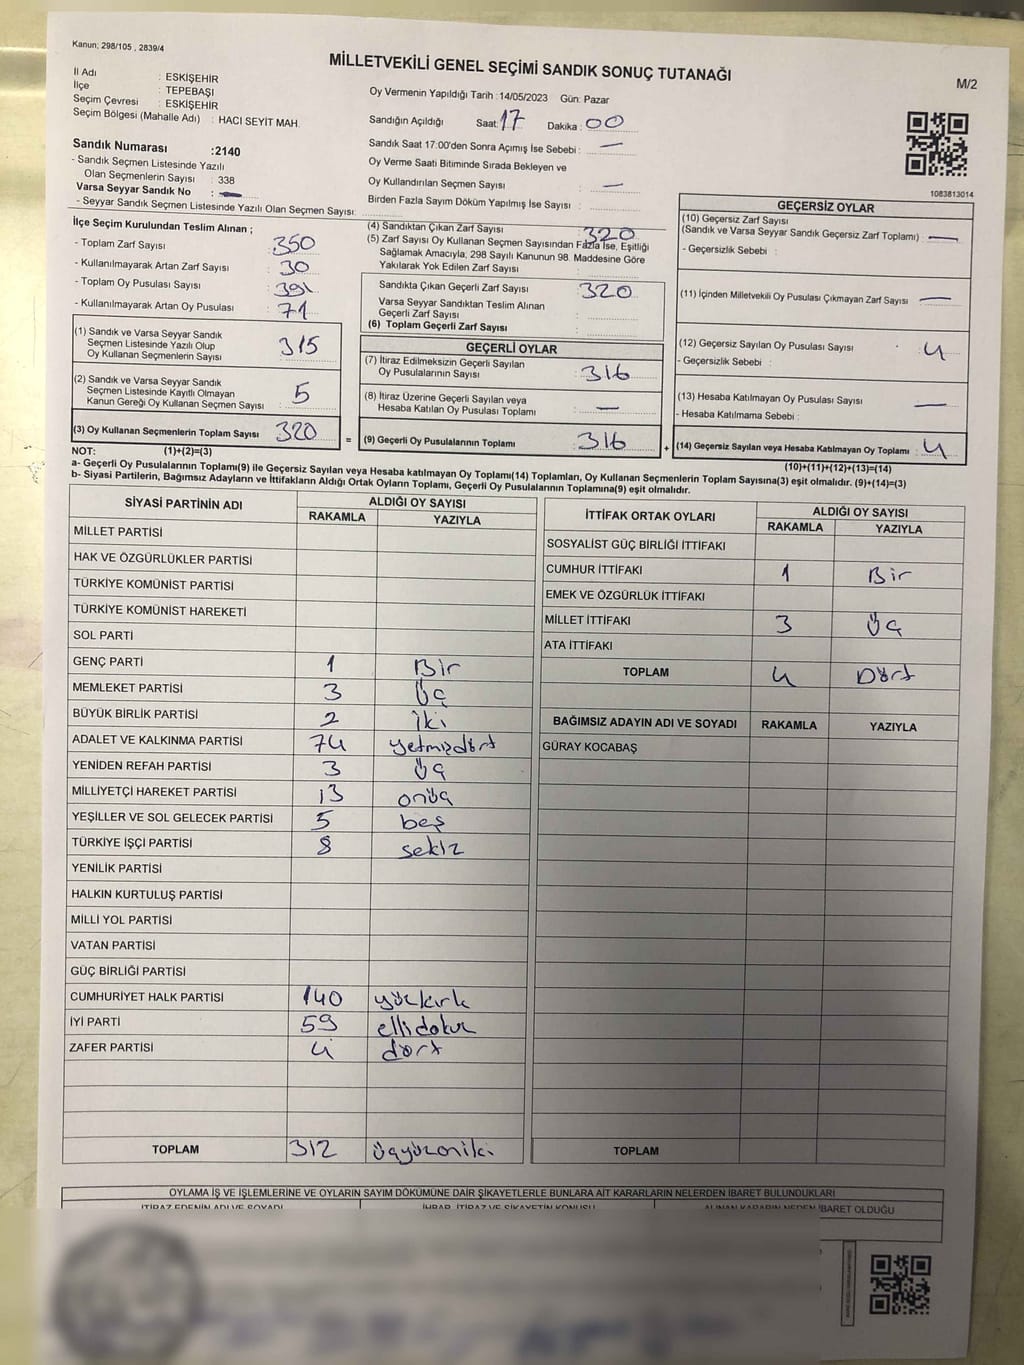 Kanun; 298/105 , 2839/4
MİLLETVEKİLİ GENEL SEÇİMİ SANDIK SONUÇ TUTANAĞI
M/2
İl Adı : ESKİŞEHİR
İlçe : TEPEBAŞI
Seçim Çevresi : ESKİŞEHİR
Seçim Bölgesi (Mahalle Adı) : HACI SEYİT MAH.
Oy Vermenin Yapıldığı Tarih :14/05/2023 Gün: Pazar
Sandığın Açıldığı Saat: 17 Dakika : 00
Sandık Saat 17:00'den Sonra Açımış İse Sebebi : —
Oy Verme Saati Bitiminde Sırada Bekleyen ve
Oy Kullandırılan Seçmen Sayısı : —
Birden Fazla Sayım Döküm Yapılmış İse Sayısı :
Sandık Numarası :2140
- Sandık Seçmen Listesinde Yazılı
Olan Seçmenlerin Sayısı : 338
Varsa Seyyar Sandık No : —
- Seyyar Sandık Seçmen Listesinde Yazılı Olan Seçmen Sayısı:
1083813014
İlçe Seçim Kurulundan Teslim Alınan ;
- Toplam Zarf Sayısı : 350
- Kullanılmayarak Artan Zarf Sayısı : 30
- Toplam Oy Pusulası Sayısı : 391
- Kullanılmayarak Artan Oy Pusulası : 71
(1) Sandık ve Varsa Seyyar Sandık
Seçmen Listesinde Yazılı Olup
Oy Kullanan Seçmenlerin Sayısı : 315
(2) Sandık ve Varsa Seyyar Sandık
Seçmen Listesinde Kayıtlı Olmayan
Kanun Gereği Oy Kullanan Seçmen Sayısı : 5
(3) Oy Kullanan Seçmenlerin Toplam Sayısı : 320
(4) Sandıktan Çıkan Zarf Sayısı : 320
(5) Zarf Sayısı Oy Kullanan Seçmen Sayısından Fazla İse, Eşitliği
Sağlamak Amacıyla, 298 Sayılı Kanunun 98. Maddesine Göre
Yakılarak Yok Edilen Zarf Sayısı :
Sandıkta Çıkan Geçerli Zarf Sayısı : 320
Varsa Seyyar Sandıktan Teslim Alınan
Geçerli Zarf Sayısı :
(6) Toplam Geçerli Zarf Sayısı :
GEÇERLİ OYLAR
(7) İtiraz Edilmeksizin Geçerli Sayılan
Oy Pusulalarının Sayısı : 316
(8) İtiraz Üzerine Geçerli Sayılan veya
Hesaba Katılan Oy Pusulası Toplamı : —
= (9) Geçerli Oy Pusulalarının Toplamı : 316
GEÇERSİZ OYLAR
(10) Geçersiz Zarf Sayısı
(Sandık ve Varsa Seyyar Sandık Geçersiz Zarf Toplamı) : —
- Geçersizlik Sebebi :
(11) İçinden Milletvekili Oy Pusulası Çıkmayan Zarf Sayısı : —
(12) Geçersiz Sayılan Oy Pusulası Sayısı : 4
- Geçersizlik Sebebi :
(13) Hesaba Katılmayan Oy Pusulası Sayısı : —
- Hesaba Katılmama Sebebi :
+ (14) Geçersiz Sayılan veya Hesaba Katılmayan Oy Toplamı : 4
NOT: (1)+(2)=(3)
(10)+(11)+(12)+(13)=(14)
a- Geçerli Oy Pusulalarının Toplamı(9) ile Geçersiz Sayılan veya Hesaba katılmayan Oy Toplamı(14) Toplamları, Oy Kullanan Seçmenlerin Toplam Sayısına(3) eşit olmalıdır. (9)+(14)=(3)
b- Siyasi Partilerin, Bağımsız Adayların ve İttifakların Aldığı Ortak Oyların Toplamı, Geçerli Oy Pusulalarının Toplamına(9) eşit olmalıdır.
SİYASİ PARTİNİN ADI ALDIĞI OY SAYISI
RAKAMLA YAZIYLA
MİLLET PARTİSİ
HAK VE ÖZGÜRLÜKLER PARTİSİ
TÜRKİYE KOMÜNİST PARTİSİ
TÜRKİYE KOMÜNİST HAREKETİ
SOL PARTİ
GENÇ PARTİ 1 Bir
MEMLEKET PARTİSİ 3 Üç
BÜYÜK BİRLİK PARTİSİ 2 iki
ADALET VE KALKINMA PARTİSİ 74 yetmişdört
YENİDEN REFAH PARTİSİ 3 Üç
MİLLİYETÇİ HAREKET PARTİSİ 13 onüç
YEŞİLLER VE SOL GELECEK PARTİSİ 5 beş
TÜRKİYE İŞÇİ PARTİSİ 8 sekiz
YENİLİK PARTİSİ
HALKIN KURTULUŞ PARTİSİ
MİLLİ YOL PARTİSİ
VATAN PARTİSİ
GÜÇ BİRLİĞİ PARTİSİ
CUMHURİYET HALK PARTİSİ 140 yüzkırk
İYİ PARTİ 59 ellidokuz
ZAFER PARTİSİ 4 dört
TOPLAM 312 üçyüzoniki
İTTİFAK ORTAK OYLARI ALDIĞI OY SAYISI
RAKAMLA YAZIYLA
SOSYALİST GÜÇ BİRLİĞİ İTTİFAKI
CUMHUR İTTİFAKI 1 Bir
EMEK VE ÖZGÜRLÜK İTTİFAKI
MİLLET İTTİFAKI 3 Üç
ATA İTTİFAKI
TOPLAM 4 Dört
BAĞIMSIZ ADAYIN ADI VE SOYADI RAKAMLA YAZIYLA
GÜRAY KOCABAŞ
TOPLAM
OYLAMA İŞ VE İŞLEMLERİNE VE OYLARIN SAYIM DÖKÜMÜNE DAİR ŞİKAYETLERLE BUNLARA AİT KARARLARIN NELERDEN İBARET BULUNDUKLARI
İTİRAZ EDENİN ADI VE SOYADI İHBAR, İTİRAZ VE ŞİKAYETİN KONUSU ALINAN KARARIN NEDEN İBARET OLDUĞU